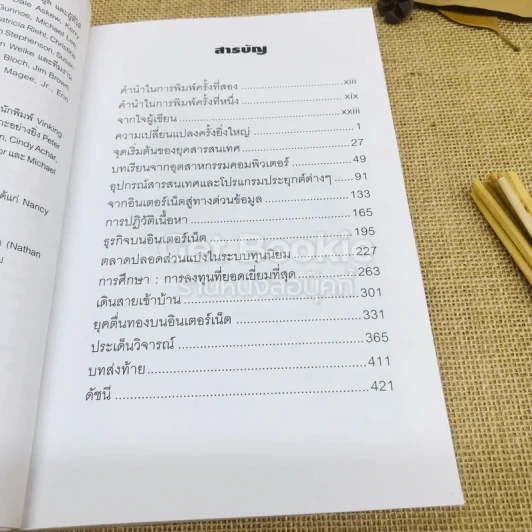 Dale Askew, Kerry
Gunnoe, Michael
Patricia Riehl, Christine
Stephenson, Susan
Welke และทีมงาน
Bloch, Jim Brown,
Magee, Jr., Erin
นักพิมพ์ Vinking
าะอย่างยิ่ง Peter
Cindy Achar,
or และ Michael
ด้แก่ Nancy
(Nathan
สารบัญ
คำนำในการพิมพ์ครั้งที่สอง xiii
คำนำในการพิมพ์ครั้งที่หนึ่ง xix
จากใจผู้เขียน xxiii
ความเปลี่ยนแปลงครั้งยิ่งใหญ่ 1
จุดเริ่มต้นของยุคสารสนเทศ 27
บทเรียนจากอุตสาหกรรมคอมพิวเตอร์ 49
อุปกรณ์สารสนเทศและโปรแกรมประยุกต์ต่างๆ 91
จากอินเตอร์เน็ตสู่ทางด่วนข้อมูล 133
การปฏิวัติเนื้อหา 165
ธุรกิจบนอินเตอร์เน็ต 195
ตลาดปลอดส่วนแบ่งในระบบทุนนิยม 227
การศึกษา : การลงทุนที่ยอดเยี่ยมที่สุด 263
เดินสายเข้าบ้าน 301
ยุคตื่นทองบนอินเตอร์เน็ต 331
ประเด็นวิจารณ์ 365
บทส่งท้าย 411
ดัชนี 421